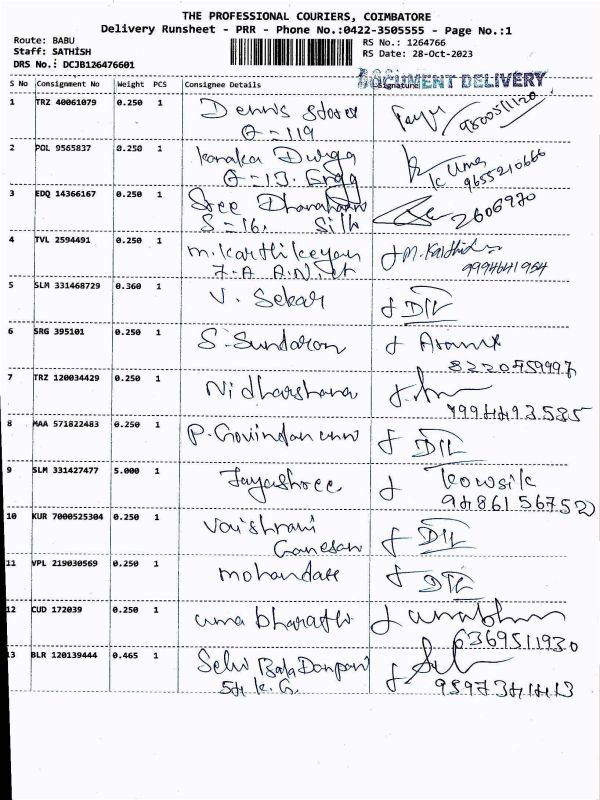 THE PROFESSIONAL COURIERS, COIMBATORE
Delivery Runsheet - PRR - Phone No.:0422-3505555 - Page No.:1
Route: BABU
Staff: SATHISH
DRS No.: DCJB126476601
RS No.: 1264766
RS Date: 28-Oct-2023
DOCUMENT DELIVERY
S No Consignment No Weight PCS Consignee Details Signature
1 TRZ 40061079 0.250 1 Dennis stores
9800511120
2 POL 9565837 0.250 1 Kanaka Durga
K Uma
9655210666
3 EDQ 14366167 0.250 1 Sree
S=16. Silk
2606970
4 TVL 2594491 0.250 1 m. Karthikeyan M. Karthi
7-A A.N. St 9994641954
5 SLM 331468729 0.360 1 V. Sekar DIL
6 SRG 395101 0.250 1 S. Sundaron
8220759997
7 TRZ 120034429 0.250 1 Nidharshana
9994493585
8 MAA 571822483 0.250 1 P. DIL
9 SLM 331427477 5.000 1 Jayashree Kowsik
9486156752
10 KUR 7000525304 0.250 1 Vaishnavi DIL
Ganesan
11 VPL 219030569 0.250 1 mohandass DIL
12 CUD 172039 0.250 1 uma bharathi
6369511930
13 BLR 120139444 0.465 1 Selvi Bala
54 K.G. 9597341413